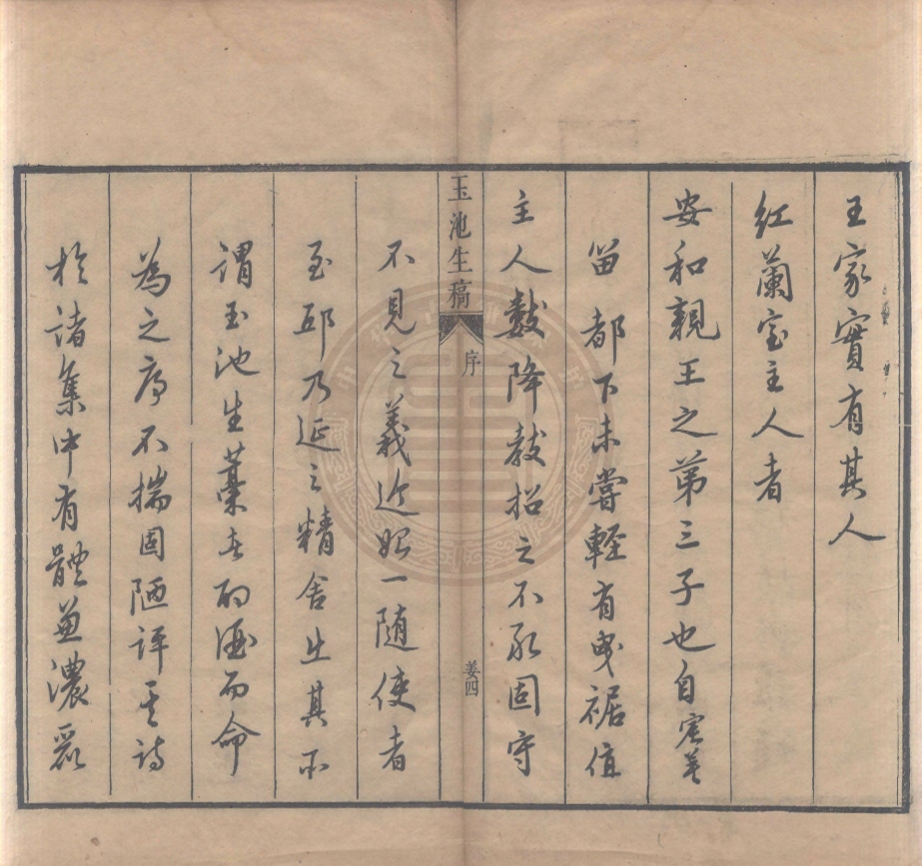 王家實有其人
紅蘭室主人者
安和親王之第三子也自宸英
留都下未嘗輕有曳裾值
主人數降教招之不能固守
玉池生稿 序 姜四
不見之義近始一隨使者
至邸乃延之精舍出其所
謂玉池生藁者酌酒而命
為之序不揣固陋評其詩
於諸集中有體兼濃麗